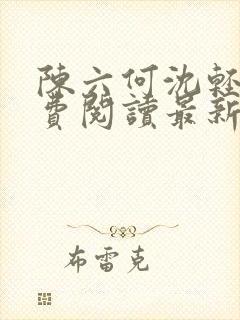 陳六何沈輕
費閱讀最新
布雷克